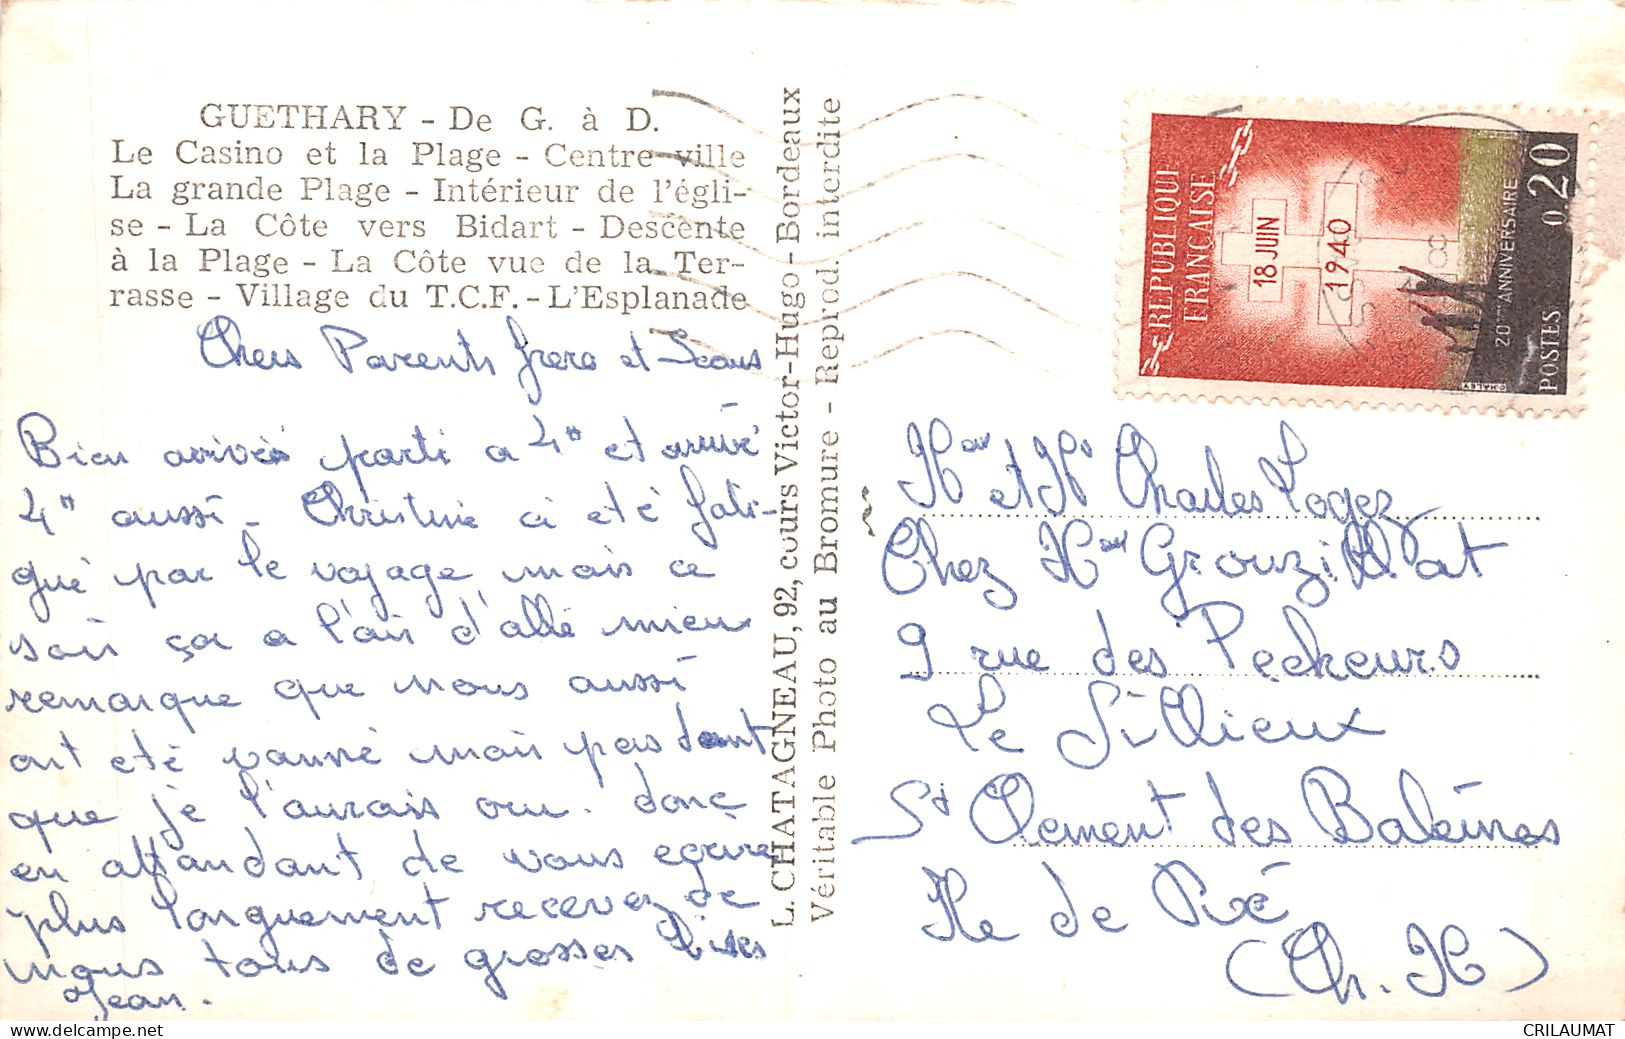 GUETHARY - De G. à D.
Le Casino et la Plage - Centre-ville
La grande Plage - Intérieur de l'égli-
se - La Côte vers Bidart - Descente
à la Plage - La Côte vue de la Ter-
rasse - Village du T.C.F. - L'Esplanade
Chers Parents frere et
Bien arrivés parti a 4 et arrivé
4 aussi - Christine a eté fati-
gué par le voyage mais ce
soir ça a l'air d'allé mieux
remarque que nous aussi
ont eté vanné mais pas tant
que je l'aurais cru. donc
en attendant de vous ecrire
plus longuement recevez de
nous tous de grosses bises
Jean.
L. CHATAGNEAU, 92, cours Victor-Hugo - Bordeaux
Véritable Photo au Bromure - Reprod. interdite
REPUBLIQUE
FRANÇAISE
18 JUIN
1940
20me ANNIVERSAIRE
POSTES 0.20
et Charles Logez
Chez Grouzillat
9 rue des Pecheurs
Le Gillieux
St Clement des Baleines
Ile de Ré
(Ch. M)
CRILAUMAT